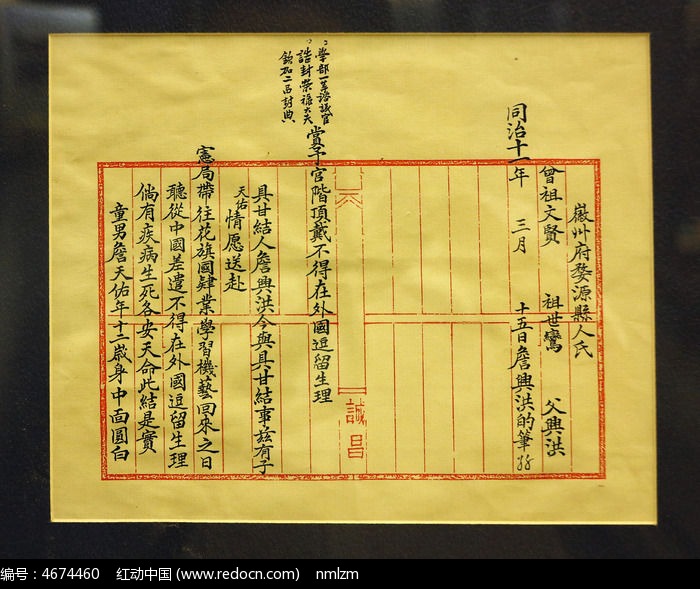 學部一等諮議官
誥封榮祿大夫
欽加二品封典
徽州府婺源縣人氏
曾祖文賢 祖世鸞 父興洪
同治十一年 三月 十五日詹興洪的筆
誠昌
賞予官階頂戴不得在外國逗留生理
具甘結人詹興洪今與具甘結事茲有子
天佑情愿送赴
憲局帶往花旗國肄業學習機藝回來之日
聽從中國差遣不得在外國逗留生理
倘有疾病生死各安天命此結是實
童男詹天佑年十二歲身中面圓白
编号：4674460 红动中国 (www.redocn.com) nmlzm